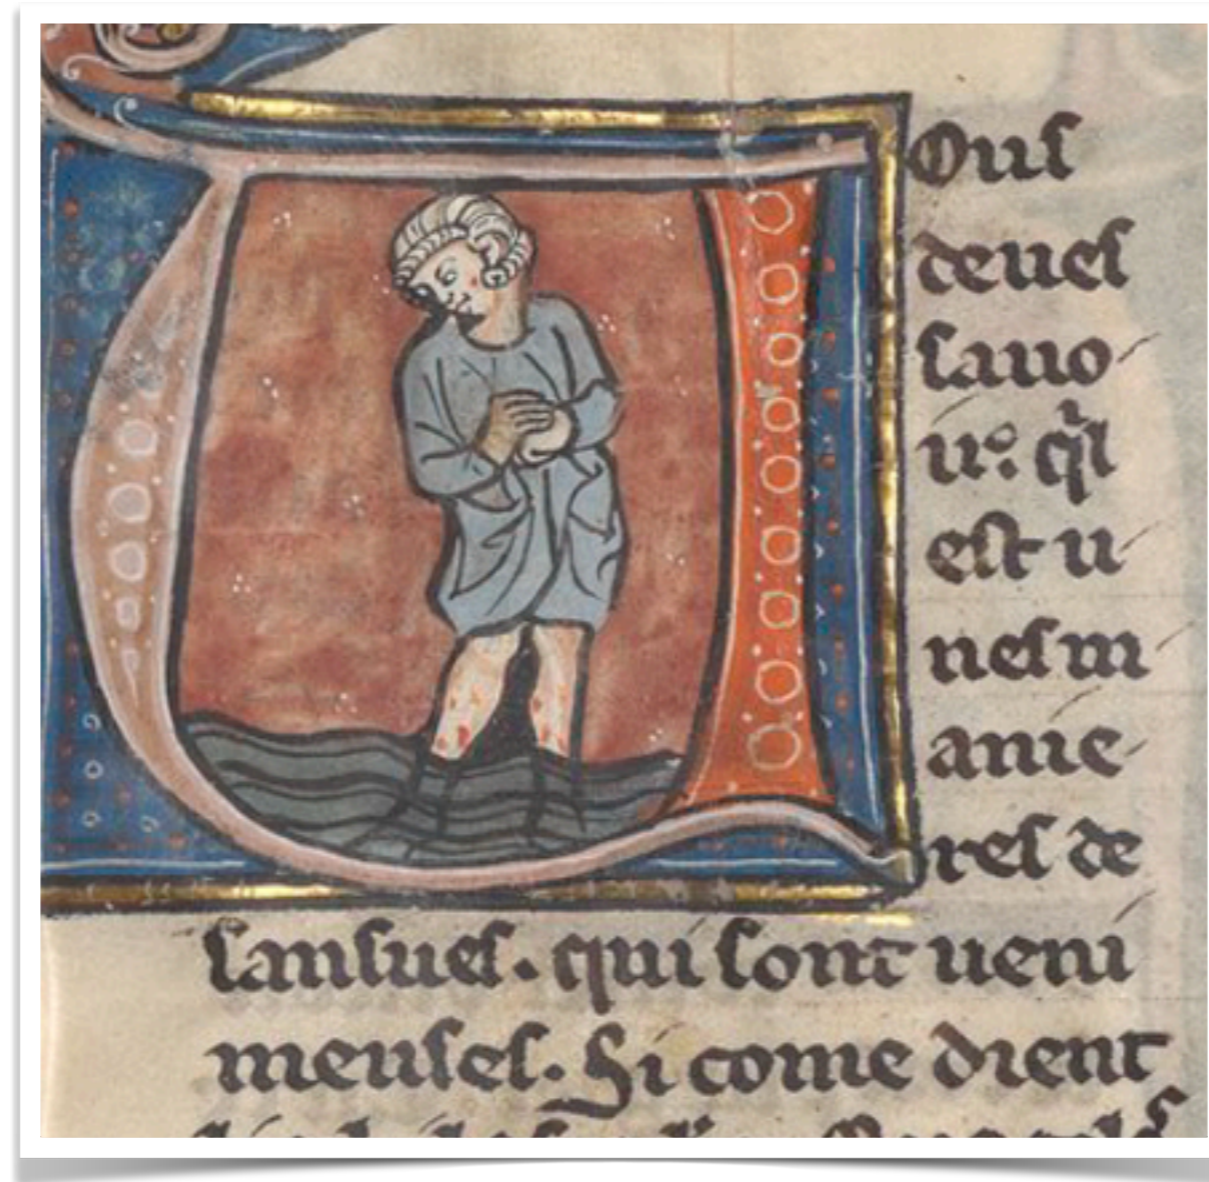 VOus
deues
sauo
ir: q̾l
est u
nes m
anie
res de
sansues. qui sont ueni
meuses. Si come dient